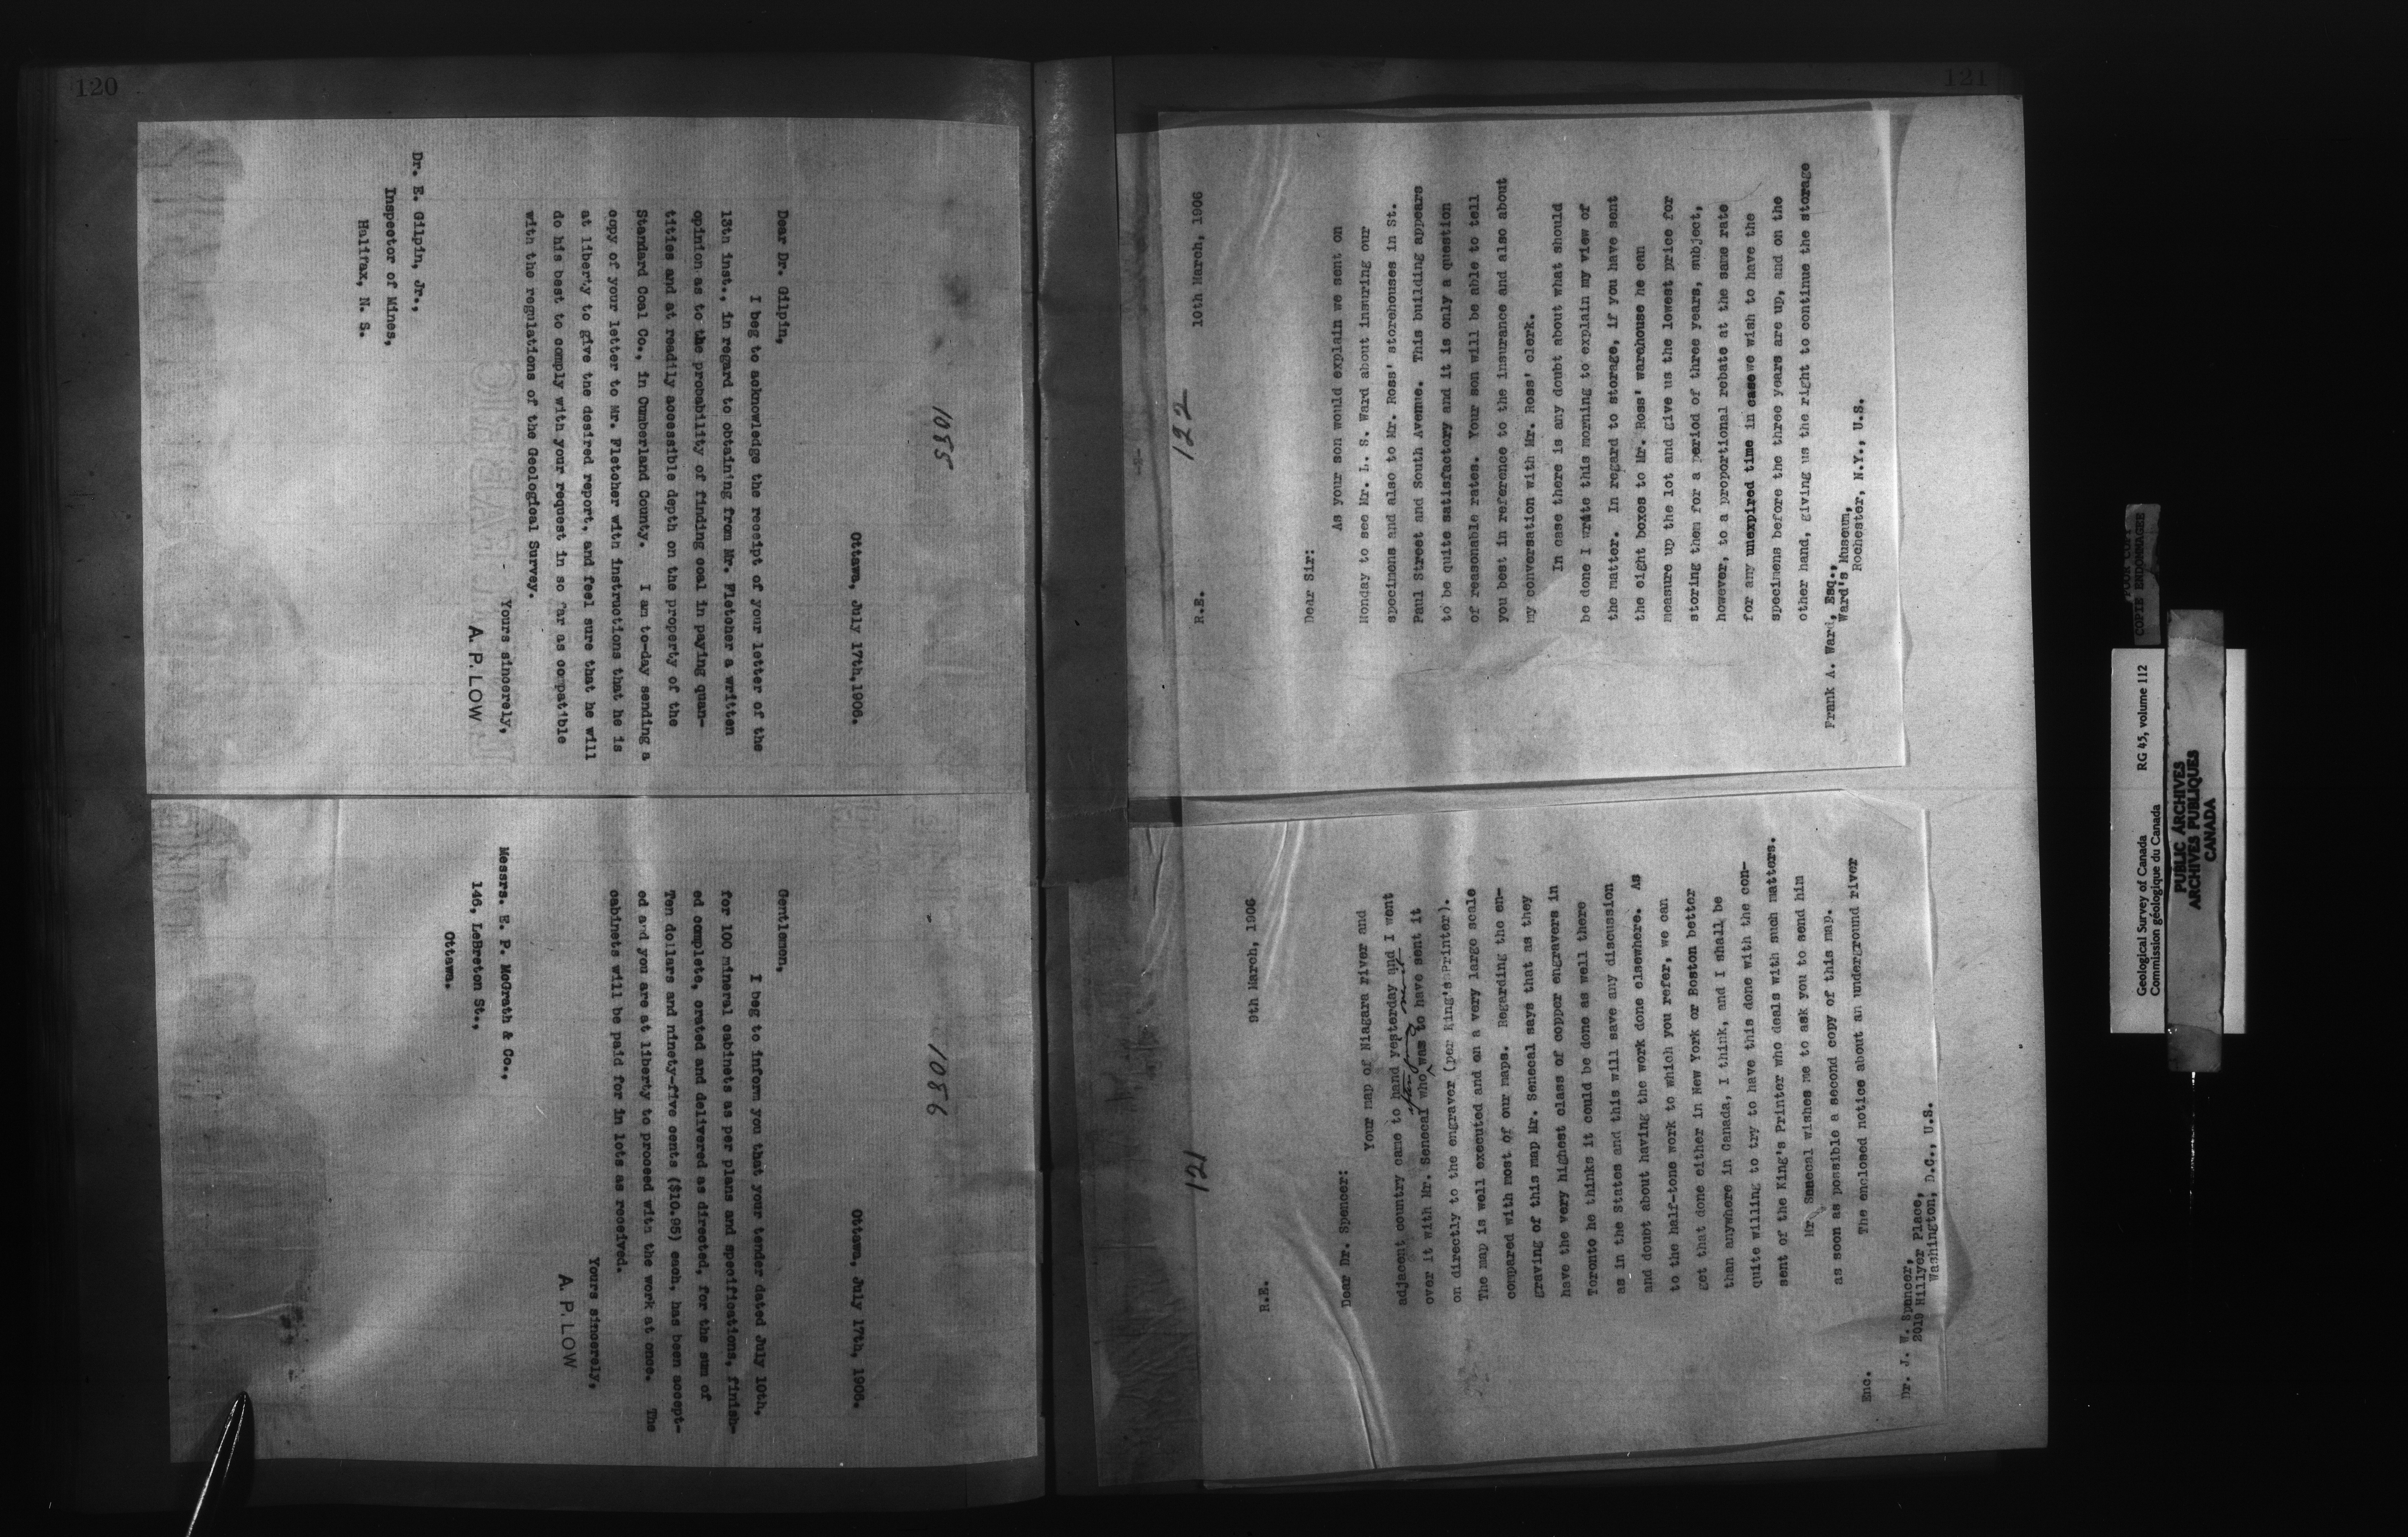 120
1085
Ottawa, July 17th, 1906.
Dear Dr. Gilpin,
I beg to acknowledge the receipt of your letter of the
13th inst., in regard to obtaining from Mr. Fletcher a written
opinion as to the probability of finding coal in paying quan-
tities and at readily accessible depth on the property of the
Standard Coal Co., in Cumberland County. I am to-day sending a
copy of your letter to Mr. Fletcher with instructions that he is
at liberty to give the desired report, and feel sure that he will
do his best to comply with your request in so far as compatible
with the regulations of the Geological Survey.
Yours sincerely,
A. P. LOW
Dr. E. Gilpin, Jr.,
Inspector of Mines,
Halifax, N. S.
1086
Ottawa, July 17th, 1906.
Gentlemen,
I beg to inform you that your tender dated July 10th,
for 100 mineral cabinets as per plans and specifications, finish-
ed complete, crated and delivered as directed, for the sum of
Ten dollars and ninety-five cents ($10.95) each, has been accept-
ed and you are at liberty to proceed with the work at once. The
cabinets will be paid for in lots as received.
Yours sincerely,
A. P. LOW
Messrs. E. P. McGrath & Co.,
146, LeBreton St.,
Ottawa.
121
121
R.E.
9th March, 1906
Dear Dr. Spencer:
Your map of Niagara river and
adjacent country came to hand yesterday and I went
over it with Mr. Senecal who was to have sent it
on directly to the engraver (per King's Printer).
The map is well executed and on a very large scale
compared with most of our maps. Regarding the en-
graving of this map Mr. Senecal says that as they
have the very highest class of copper engravers in
Toronto he thinks it could be done as well there
as in the States and this will save any discussion
and doubt about having the work done elsewhere. As
to the half-tone work to which you refer, we can
get that done either in New York or Boston better
than anywhere in Canada, I think, and I shall be
quite willing to try to have this done with the con-
sent of the King's Printer who deals with such matters.
Mr Senecal wishes me to ask you to send him
as soon as possible a second copy of this map.
The enclosed notice about an underground river
Enc.
Dr. J. W. Spencer,
2019 Hillyer Place,
Washington, D.C., U.S.
122
-2-
R.E.
10th March, 1906
Dear Sir:
As your son would explain we sent on
Monday to see Mr. L. S. Ward about insuring our
specimens and also to Mr. Ross' storehouses in St.
Paul Street and South Avenue. This building appears
to be quite satisfactory and it is only a question
of reasonable rates. Your son will be able to tell
you best in reference to the insurance and also about
my conversation with Mr. Ross' clerk.
In case there is any doubt about what should
be done I write this morning to explain my view of
the matter. In regard to storage, if you have sent
the eight boxes to Mr. Ross' warehouse he can
measure up the lot and give us the lowest price for
storing them for a period of three years, subject,
however, to a proportional rebate at the same rate
for any unexpired time in case we wish to have the
specimens before the three years are up, and on the
other hand, giving us the right to continue the storage
Frank A. Ward, Esq.,
Ward's Museum,
Rochester, N.Y., U.S.
COPIE ENDOMMAGEE
Geological Survey of Canada RG 45, volume 112
Commission géologique du Canada
PUBLIC ARCHIVES
ARCHIVES PUBLIQUES
CANADA